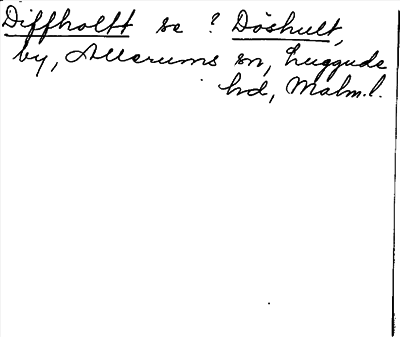 Diffholtt se ? Döshult,
by, Allerums sn, Luggude
hd, Malm.l.